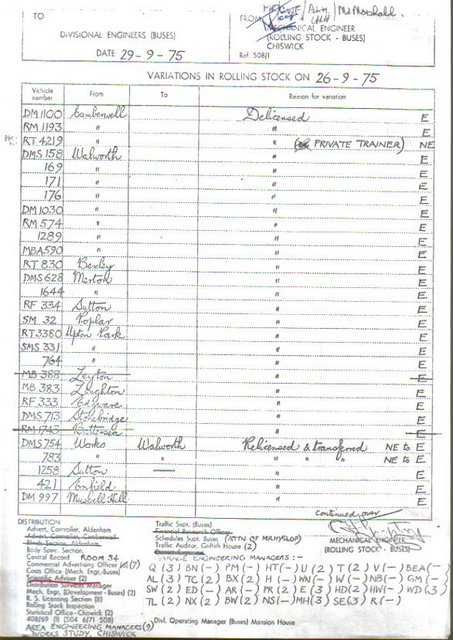 TO
DIVISIONAL ENGINEERS (BUSES)
DATE 29-9-75
FROM
MECHANICAL ENGINEER
(ROLLING STOCK - BUSES)
CHISWICK
Ref. 508/1
VARIATIONS IN ROLLING STOCK ON 26-9-75
Vehicle number From To Reason for variation
DM 1100 Camberwell Delicensed E
RM 1193 " " E
RT 4219 " " (PRIVATE TRAINER) NE
DMS 158 Walworth " E
169 " " E
171 " " E
176 " " E
DM 1030 " " E
RM 574 " " E
1289 " " E
MBA 590 " " E
RT 830 Bexley " E
DMS 628 Merton " E
1644 " " E
RF 334 Sutton " E
SM 32 Poplar " E
RT 3380 Upton Park " E
SMS 331 " " E
764 " " E
MB 388 Leyton " E
MB 383 Loughton " E
RF 333 Edgware " E
DMS 713 Stonebridge " E
RM 1743 Battersea " E
DMS 754 Works Walworth Relicensed & transferred NE to E
783 " " " " NE to E
1258 Sutton — " E
421 Enfield " E
DM 997 Muswell Hill " E
continued over
MECHANICAL ENGINEER
(ROLLING STOCK - BUSES)
DISTRIBUTION
Advert. Controller, Aldenham
Advert. Controller, Camberwell
Body Spec. Section,
Central Record ROOM 34
Mech. Engineer (Buses)
Coxis Office (Mech. Engr-Buses)
Scientific Adviser (2)
Distribution Services Manager
Mech. Engr. (Development - Buses) (2)
R. S. Licensing Section (8)
Rolling Stock Inspection
Statistical Office - Chiswick (2)
408/69 (1) 504 6/71 508
AREA ENGINEERING MANAGERS (9)
WORKS STUDY, CHISWICK
Traffic Supt. (Buses)
Financial Research Officer
Schedules Supt. (Buses)
Traffic Auditor, Griffith House (2)
GARAGE ENGINEERING MANAGERS :-
Q (3) BN (-) PM (-) HT (-) U (2) T (2) V (-) BEA (-)
AL (3) TC (2) BX (2) H (-) WN (-) W (-) NB (-) GM (-)
SW (2) ED (-) AR (-) PR (2) E (3) HD (2) HW (-) WD (3)
TL (2) NX (2) BW (2) NS (-) MH (3) SE (3) R (-)
Divl. Operating Manager (Buses) Mansion House